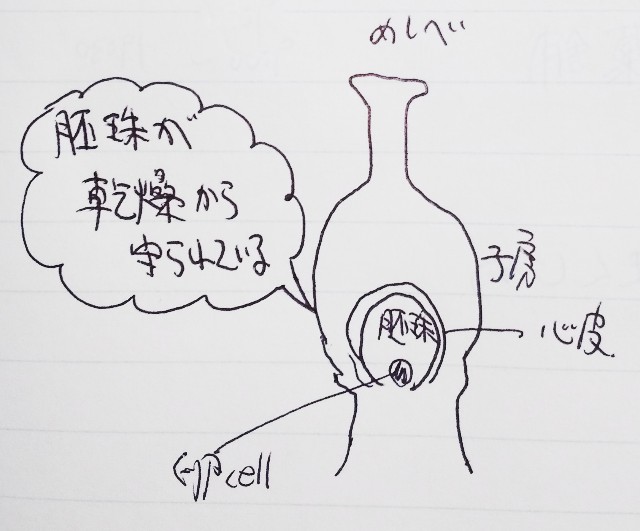 めしべ
胚珠が
乾燥から
守られている
子房
胚珠
心皮
卵cell